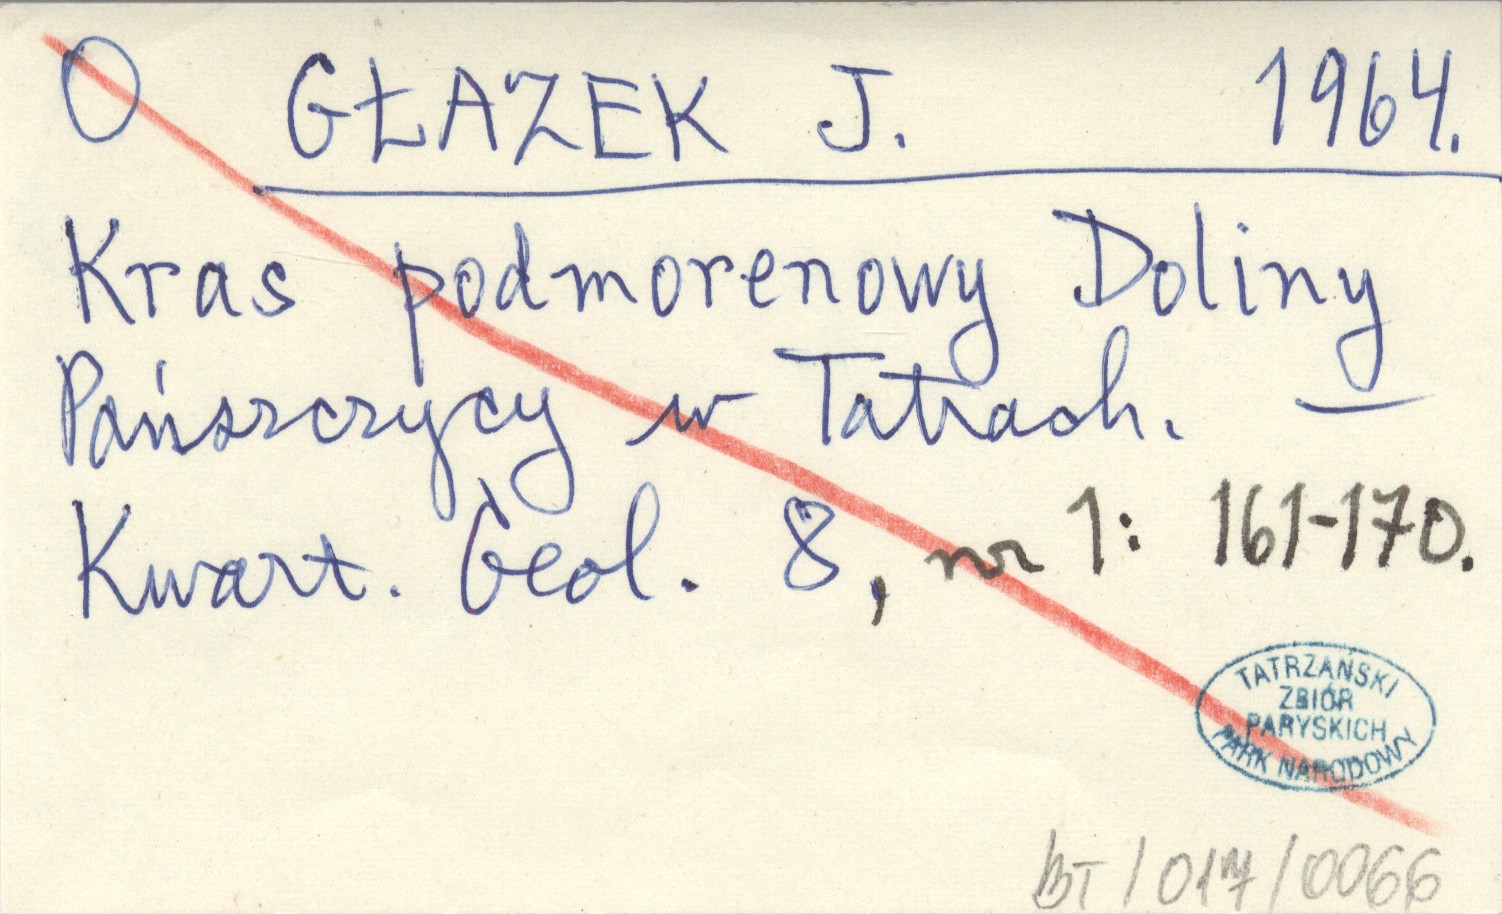 O GŁAZEK J. 1964.
Kras podmorenowy Doliny
Pańszczycy w Tatrach. —
Kwart. Geol. 8, nr 1: 161-170.
TATRZAŃSKI
ZBIÓR
PARYSKICH
PARK NARODOWY
BT/017/0066